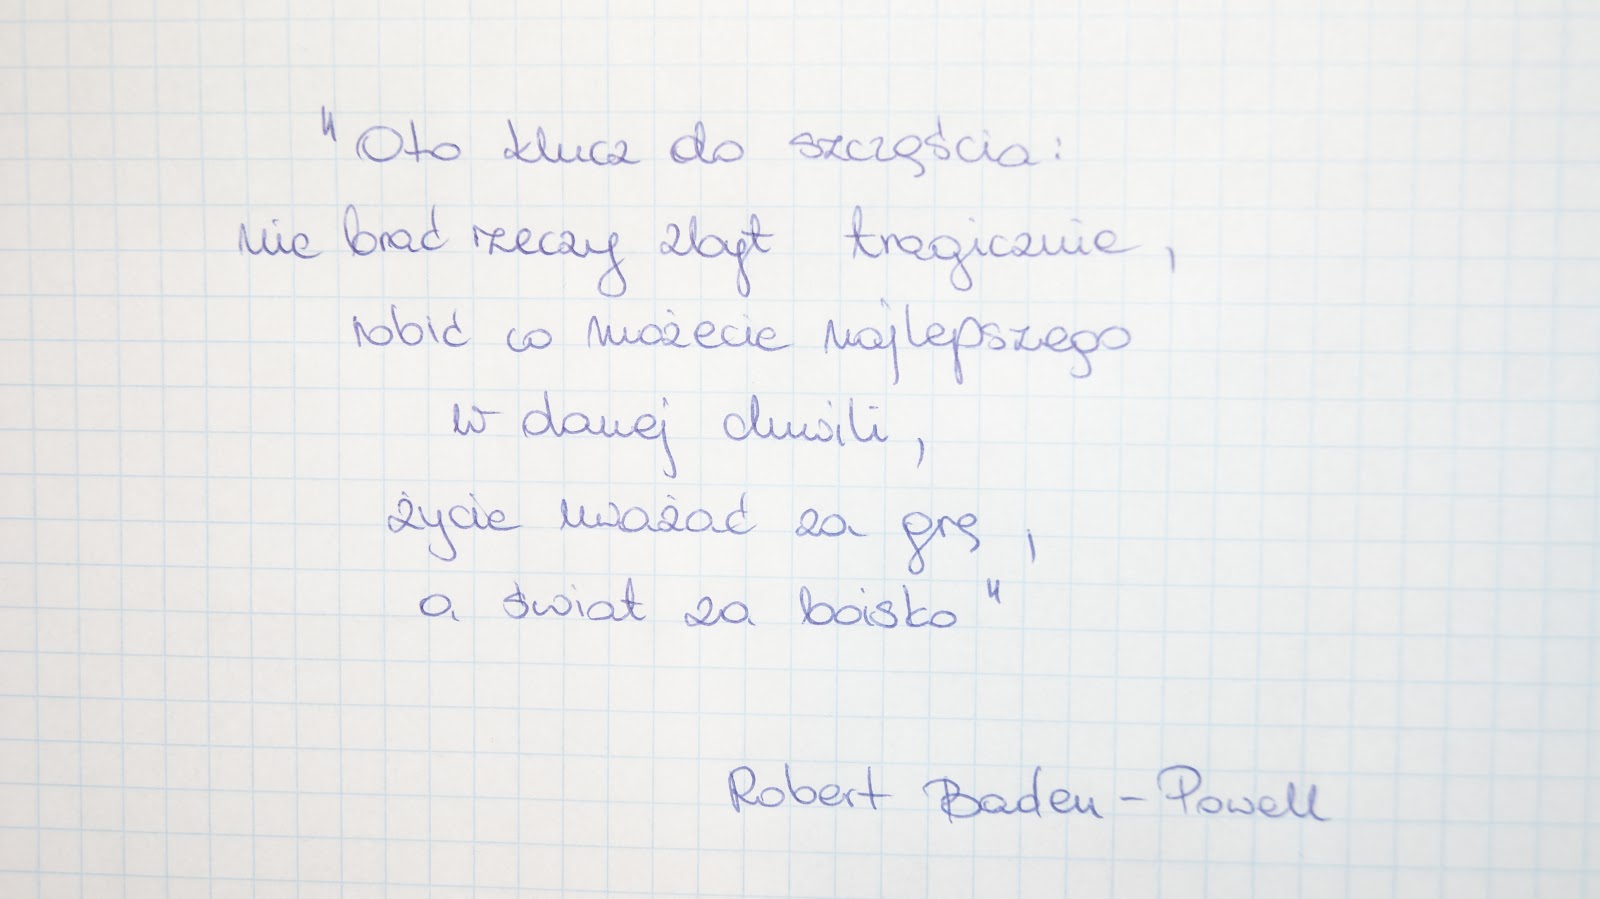 "Oto klucz do szczęścia:
nie brać rzeczy zbyt tragicznie,
robić co możecie najlepszego
w danej chwili,
życie uważać za grę,
a świat za boisko"
Robert Baden-Powell